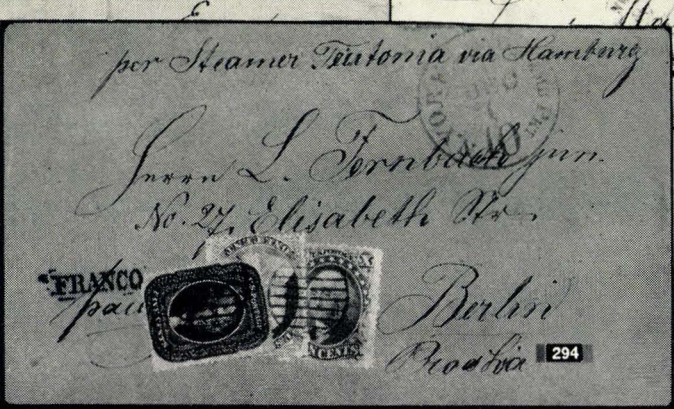 per Steamer Teutonia via Hamburg
Herrn L. Fernbach jun.
No. 27. Elisabeth Str.
FRANCO
Berlin
294